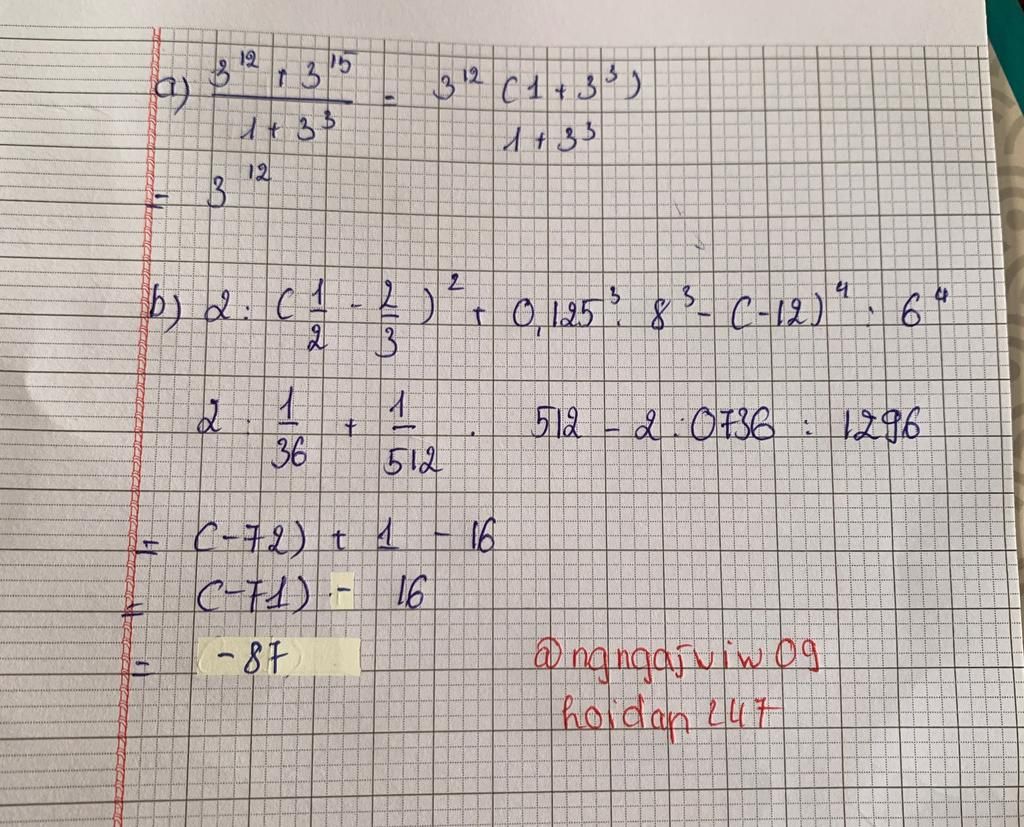 a) \frac{3^{12} + 3^{15}}{1 + 3^3} = \frac{3^{12} (1 + 3^3)}{1 + 3^3}
= 3^{12}
b) 2 : (\frac{1}{2} - \frac{2}{3})^2 + 0,125^3 . 8^3 - (-12)^4 : 6^4
2 . \frac{1}{36} + \frac{1}{512} . 512 - 2:0736 : 1296
= (-72) + 1 - 16
= (-71) - 16
= -87
@ngngajviw09
hoidap247